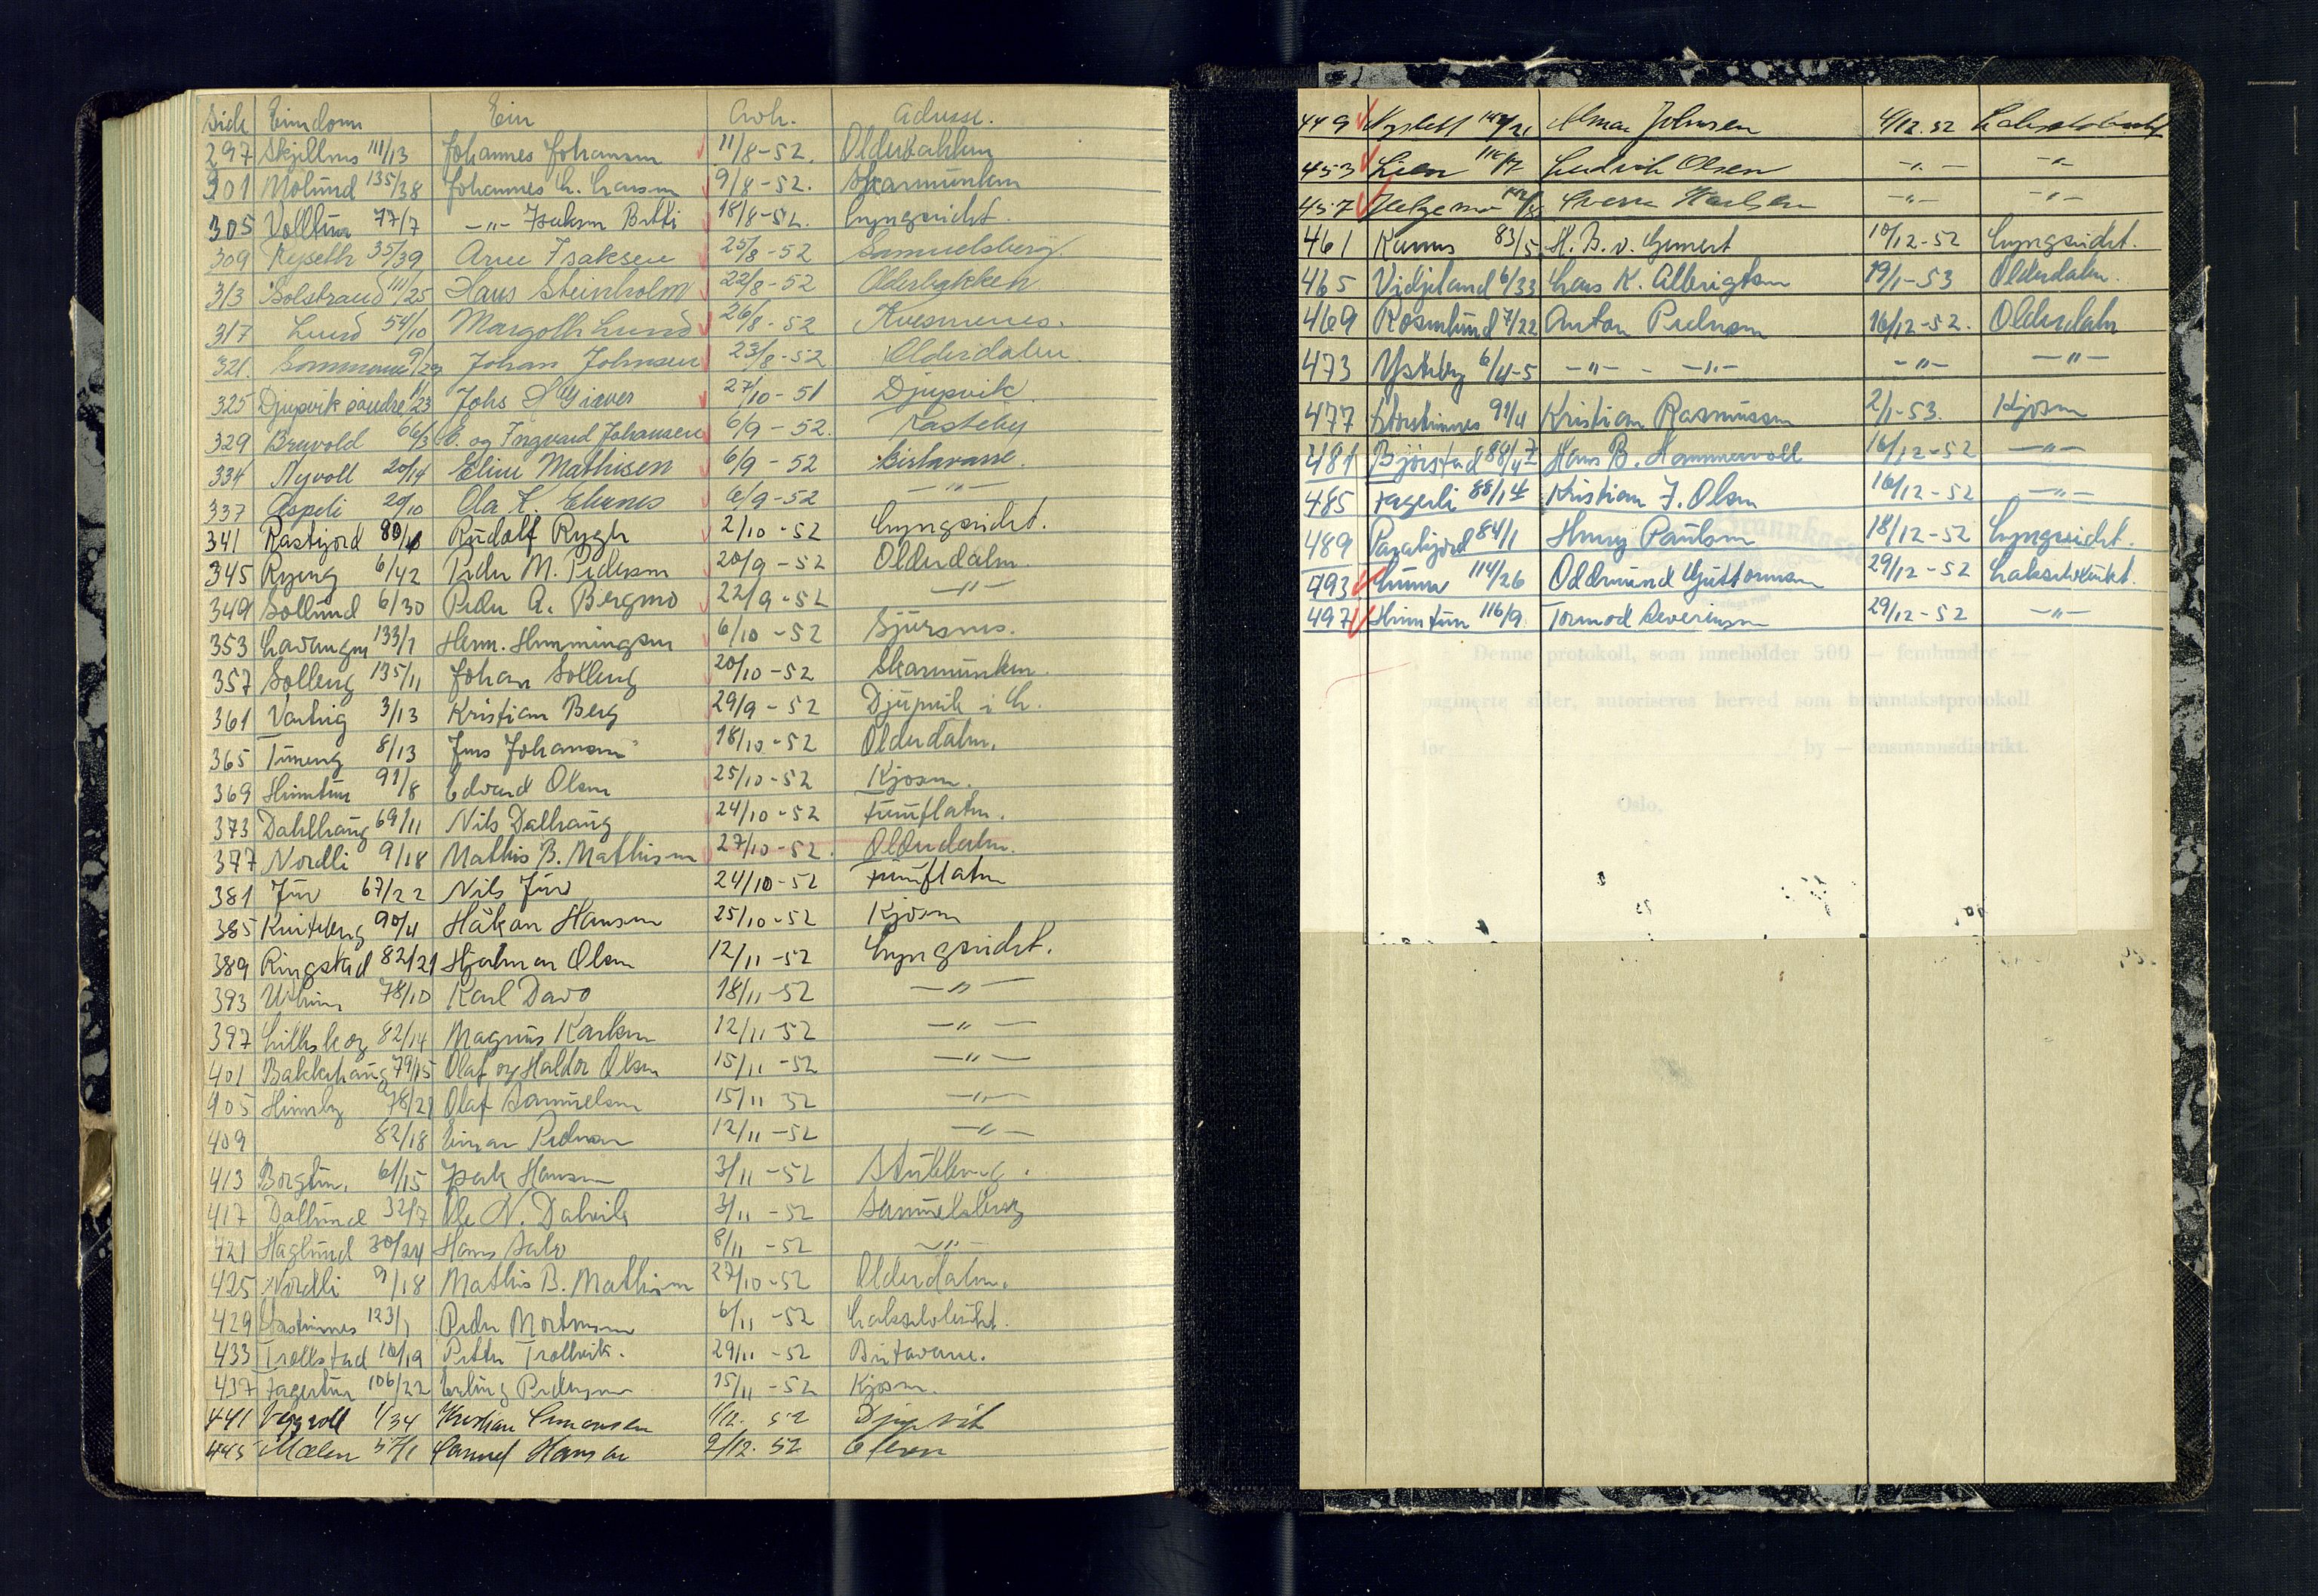 Side Eiendom Eier Avh. Adresse.
297 Skjellnes 111/13 Johannes Johansen 11/8-52. Olderbakken
301 Molund 135/38 Johannes L. Larsen 9/8-52. Skarmunken
305 Volltun 77/7 -"- Isaksen Botti 18/8-52. Lyngseidet.
309 Nyseth 35/39 Arne Isaksen 25/8-52 Samuelsberg.
313 Solstrand 111/25 Hans Steinholm 22/8-52 Olderbakken
317 Lund 54/10 Margoth Lund 26/8-52 Kvesmenes.
321. 9/29 Johan Johnsen 23/8-52 Olderdalen.
325 Djupvik søndre 1/23 Johs Giæver 27/10-51 Djupvik
329 Breivold 66/3 E. og Ingvard Johansen 6/9-52. Rasteby
334 Nyvoll 20/14 Eline Mathisen 6/9-52 Birtavarre.
337 Aspeli 20/10 Ola K. 6/9-52 -"-
341 Rastijord 80/ Rudolf Rygh 2/10-52 Lyngseidet.
345 Ryeng 6/42 Peder M. Pedersen 20/9-52 Olderdalen.
349 Sollund 6/30 Peder A. Bergmo 22/9-52 -"-
353 Lavangen 133/1 Herm. Hemmingsen 6/10-52 Sjursnes.
357 Solleng 135/11 Johan Solleng 20/10-52 Skarmunken.
361 3/13 Kristian Berg 29/9-52 Djupvik i L.
365 Tuneng 8/13 Jens Johansen 18/10-52 Olderdalen.
369 Heimtun 91/8 Edvard Olsen 25/10-52 Kjosen.
373 Dahlhaug 69/11 Nils Dalhaug 24/10-52 Furuflaten.
377 Nordli 9/18 Mathis B. Mathisen 27/10-52. Olderdalen.
381 Juv 67/22 Nils Juv 24/10-52 Furuflaten
385 90/4 Håkon Hansen 25/10-52 Kjosen
389 Ringstad 82/21 Hjalmar Olsen 12/11-52 Lyngseidet.
393 Utheim 78/10 Karl Davo 18/11-52 -"-
397 82/14 Magnus Karlsen 12/11-52 -"-
401 Bakkehaug 79/15 Olaf og Haldor Olsen 15/11-52 -"-
405 Heimly 78/21 Olaf Samuelsen 15/11 52 -"-
409 82/18 Einar Pedersen 12/11-52 -"-
413 Borgtun. 61/15 Isak Hansen 3/11-52
417 Dallund 32/7 Ole N. Dalvik 3/11-52 Samuelsberg
421 Haglund 30/24 Hans Salo 8/11-52 -"-
425 Nordli 9/18 Mathis B. Mathisen 27/10-52 Olderdalen.
429 Storsteinnes 123/1 Peder Mortensen 6/11-52 Lakselvbukt.
433 Trollstad 18/19 Petter Trollvik. 29/11-52 Birtavarre.
437 Fagertun 106/22 Erling Pedersen 15/11-52 Kjosen.
441 1/34 Kristian Simonsen 1/12. 52 Djupvik
445 Mælen 57/1 Samuel Hansen 2/12. 52
449 Almar Johnsen 4/12.52 Lakselvbukt
453 Lien Ludvik Olsen -"- -"-
457 Helgemo Karlsen -"- -"-
461 Rames 83/5 H. B. v. Gemert 10/12-52 Lyngseidet.
465 Vidjeland 6/33 Lars K. Albrigtsen 19/1-53 Olderdalen.
469 Rosenlund 7/22 Anton Pedersen 16/12-52. Olderdalen
473 Ysteby 6/4-5 -"- - -"- -"- -"-
477 Storsteinnes 91/4 Kristian Rasmussen 2/1-53. Kjosen
481 Bjørstad Hans B. Hammervoll 16/12-52 -"-
485 Fagerli 88/14 Kristian J. Olsen 16/12-52 -"-
489 84/1 Henry Paulsen 18/12-52 Lyngseidet.
493 114/26 Oddmund Guttormsen 29/12-52 Lakselvbukt.
497 Heimtun 116/9 Tormod Severinsen 29/12-52 -"-
Denne protokoll, som inneholder 500 — femhundre —
paginerte sider, autoriseres herved som branntakstprotokoll
for by — lensmannsdistrikt.
Oslo,